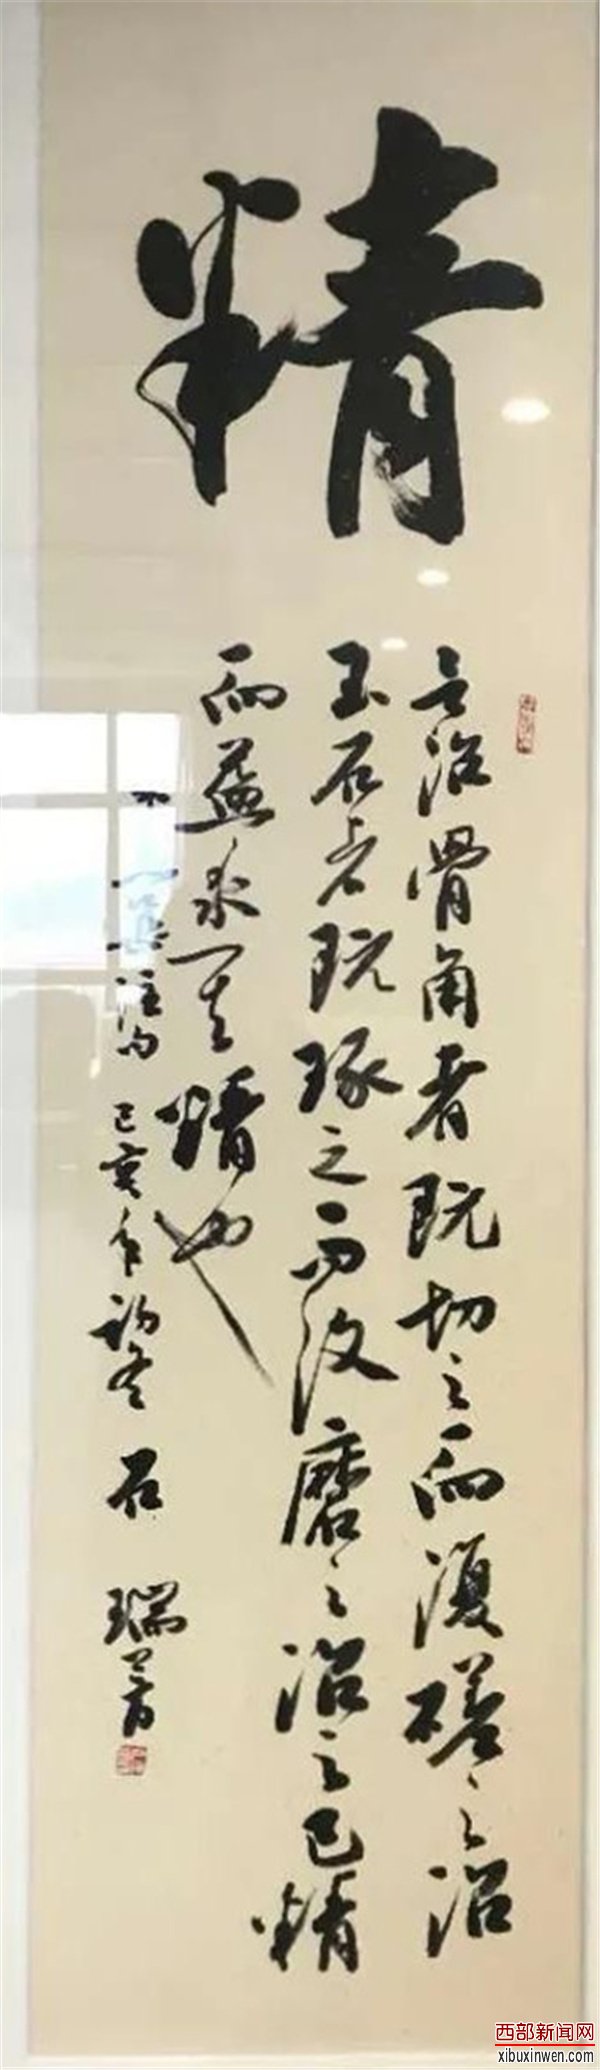 精
言治骨角者既切之而复磋之治
玉石者既琢之而复磨之治之已精
而益求其精也
注句 己亥年初冬 石瑞芳
西部新闻网
xibuxinwen.com